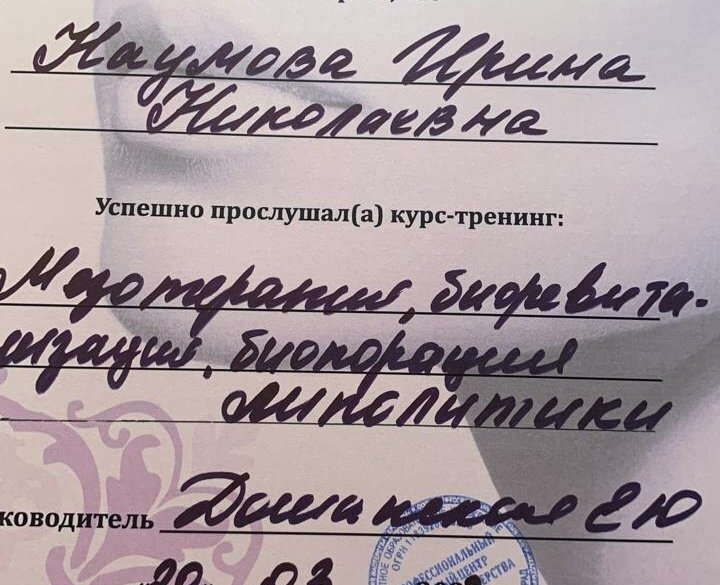 Наумова Ирина
Николаевна
Успешно прослушал(а) курс-тренинг:
Мезотерапия, биоревита-
лизация, биопорация
липолитики
ководитель Е Ю
ОГРН
ПРОФЕССИОНАЛЬНЫЙ
ЦЕНТР
03